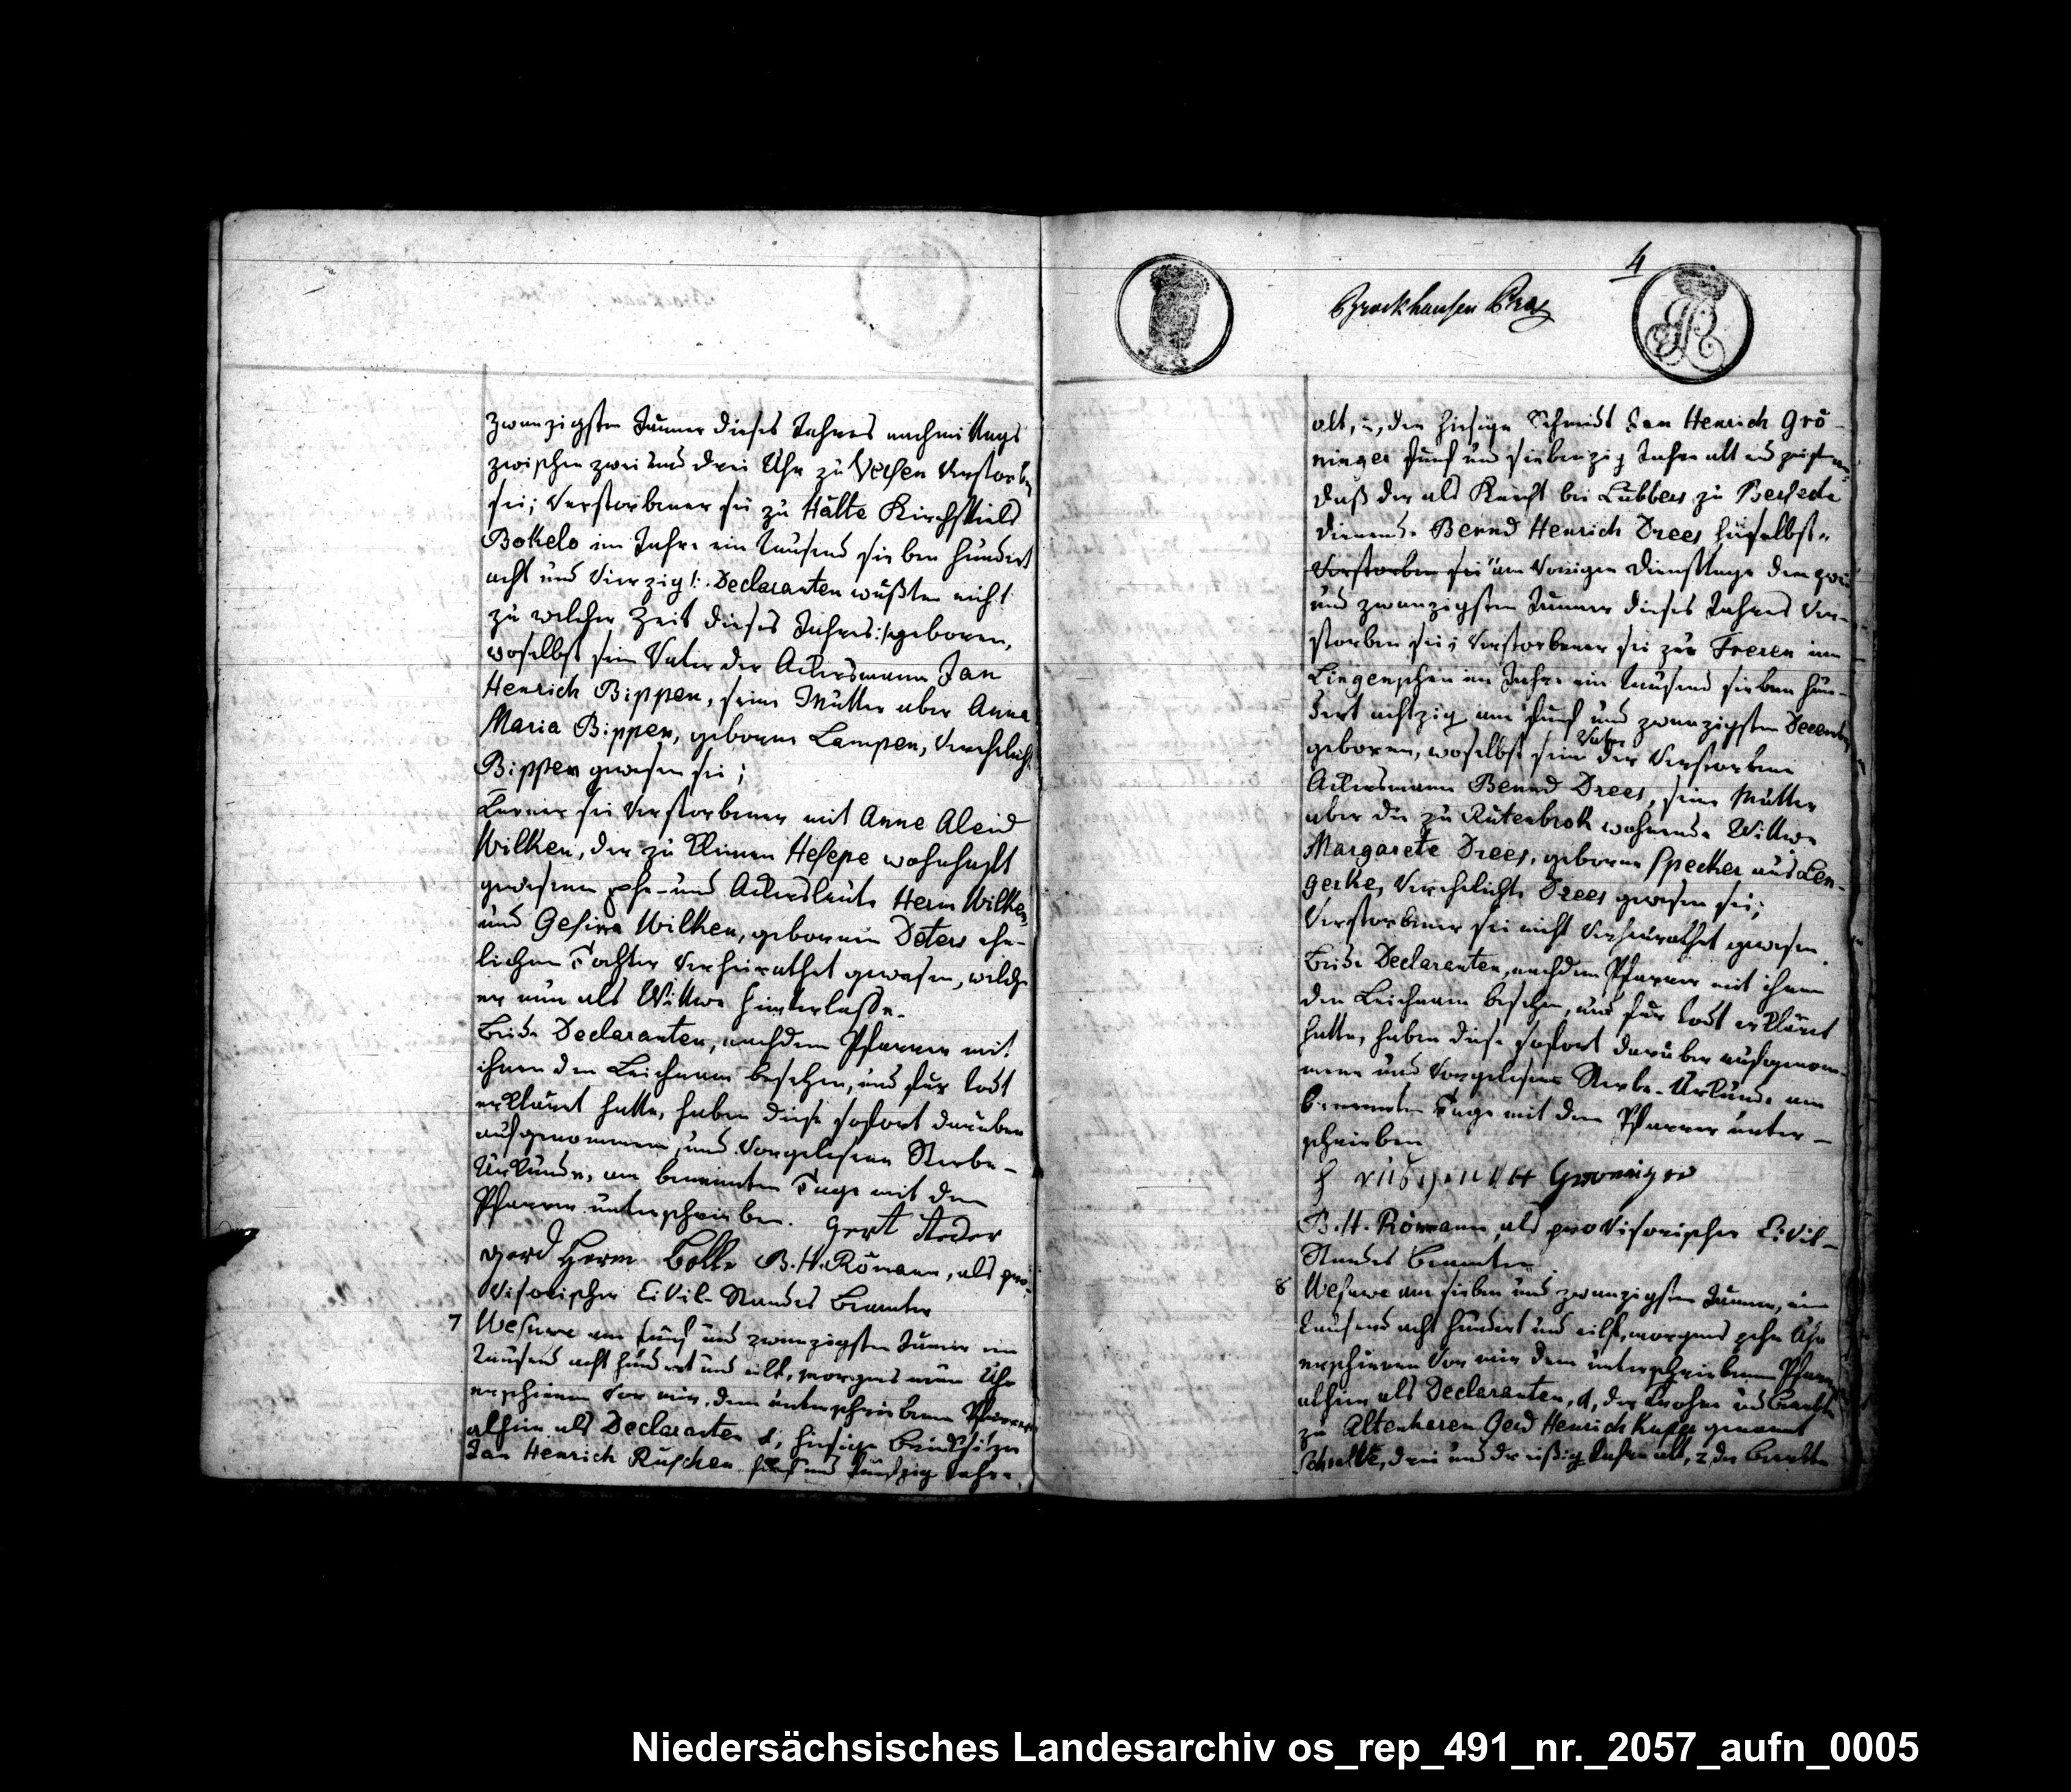 zwanzigsten Januar dieses Jahres nachmittags
zwischen zwei und drei Uhr zu Versen verstorben
sei; Verstorbener sei zu Hälte Kirchspiels
Bokelo im Jahre ein tausend sieben hundert
acht und vierzig /: Declaranten wußten nicht
zu welcher Zeit dieses Jahres :/ geboren,
woselbst sein Vater der Ackersmann Jan
Henrich Bippen, seine Mutter aber Anna
Maria Bippen, geborene Lampen, verehelichte
Bippen gewesen sei;
Ferner sei Verstorbener mit Anne Aleid
Wilken, der zu Kleinen Hesepe wohnhaft
gewesenen Ehe- und Ackersleute Herm Wilken,
und Gesina Wilken, geborenen Deters ehe-
lichen Tochter verheirathet gewesen, welche
er nun als Wittwe hinterlasse.
Beide Declaranten, nachdem Pfarrer mit
ihnen den Leichnam besehen, und für todt
erkläret hatte, haben diese sofort darüber
aufgenommene, und vorgelesene Sterbe-
Urkunde, am benannten Tage mit dem
Pfarrer unterschrieben. Gert Steder
Gerd Herm Bolle B. H. Römann, als pro-
visorischer Civil-Standes Beamter
7 Wesuwe am fünf und zwanzigsten Januar ein
tausend acht hundert und eilf, morgens neun Uhr
erschienen vor mir, dem unterschriebenen Pfarrer
alhier als Declaranten 1, hiesige Brinksitzer
Jan Henrich Ruschen fünf und fünfzig Jahre
4
Brockhausen
alt, 2, der hiesige Schmidt Jan Henrich Grö-
ninger fünf und siebenzig Jahre alt und zeigten an:
daß der als Knecht bei Lubbers zu Versede
dienende Bernd Henrich Drees hieselbst
verstorben sei am vorigen Dienstage den zwei
und zwanzigsten Januar dieses Jahres ver-
storben sei; Verstorbener sei zu Freren im
Lingenschen im Jahre ein tausend sieben hun-
dert achtzig am fünf und zwanzigsten December
geboren, woselbst sein Vater der verstorbene
Ackersmann Bernd Drees, seine Mutter
aber die zu Rütenbrok wohnende Wittwe
Margarete Drees, geborene Specker aus Len-
gerke, verehelichte Drees gewesen sei;
Verstorbener sei nicht verheirathet gewesen.
Beide Declaranten, nachdem Pfarrer mit ihnen
den Leichnam besehen, und für todt erkläret
hatte, haben diese sofort darüber aufgenom-
mene und vorgelesene Sterbe-Urkunde am
benannten Tage mit dem Pfarrer unter-
schrieben
B. H. Römann als provisorischer Civil-
Standes Beamter
8 Wesuwe am sieben und zwanzigsten Januar, ein
tausend acht hundert und eilf, morgens zehn Uhr
erschienen vor mir dem unterschriebenen Pfarrer
alhier als Declaranten, 1, der
zu Altenharen Gerd Henrich genannt
Schulte, drei und dreißig Jahre alt, 2 der
Niedersächsisches Landesarchiv os_rep_491_nr._2057_aufn_0005